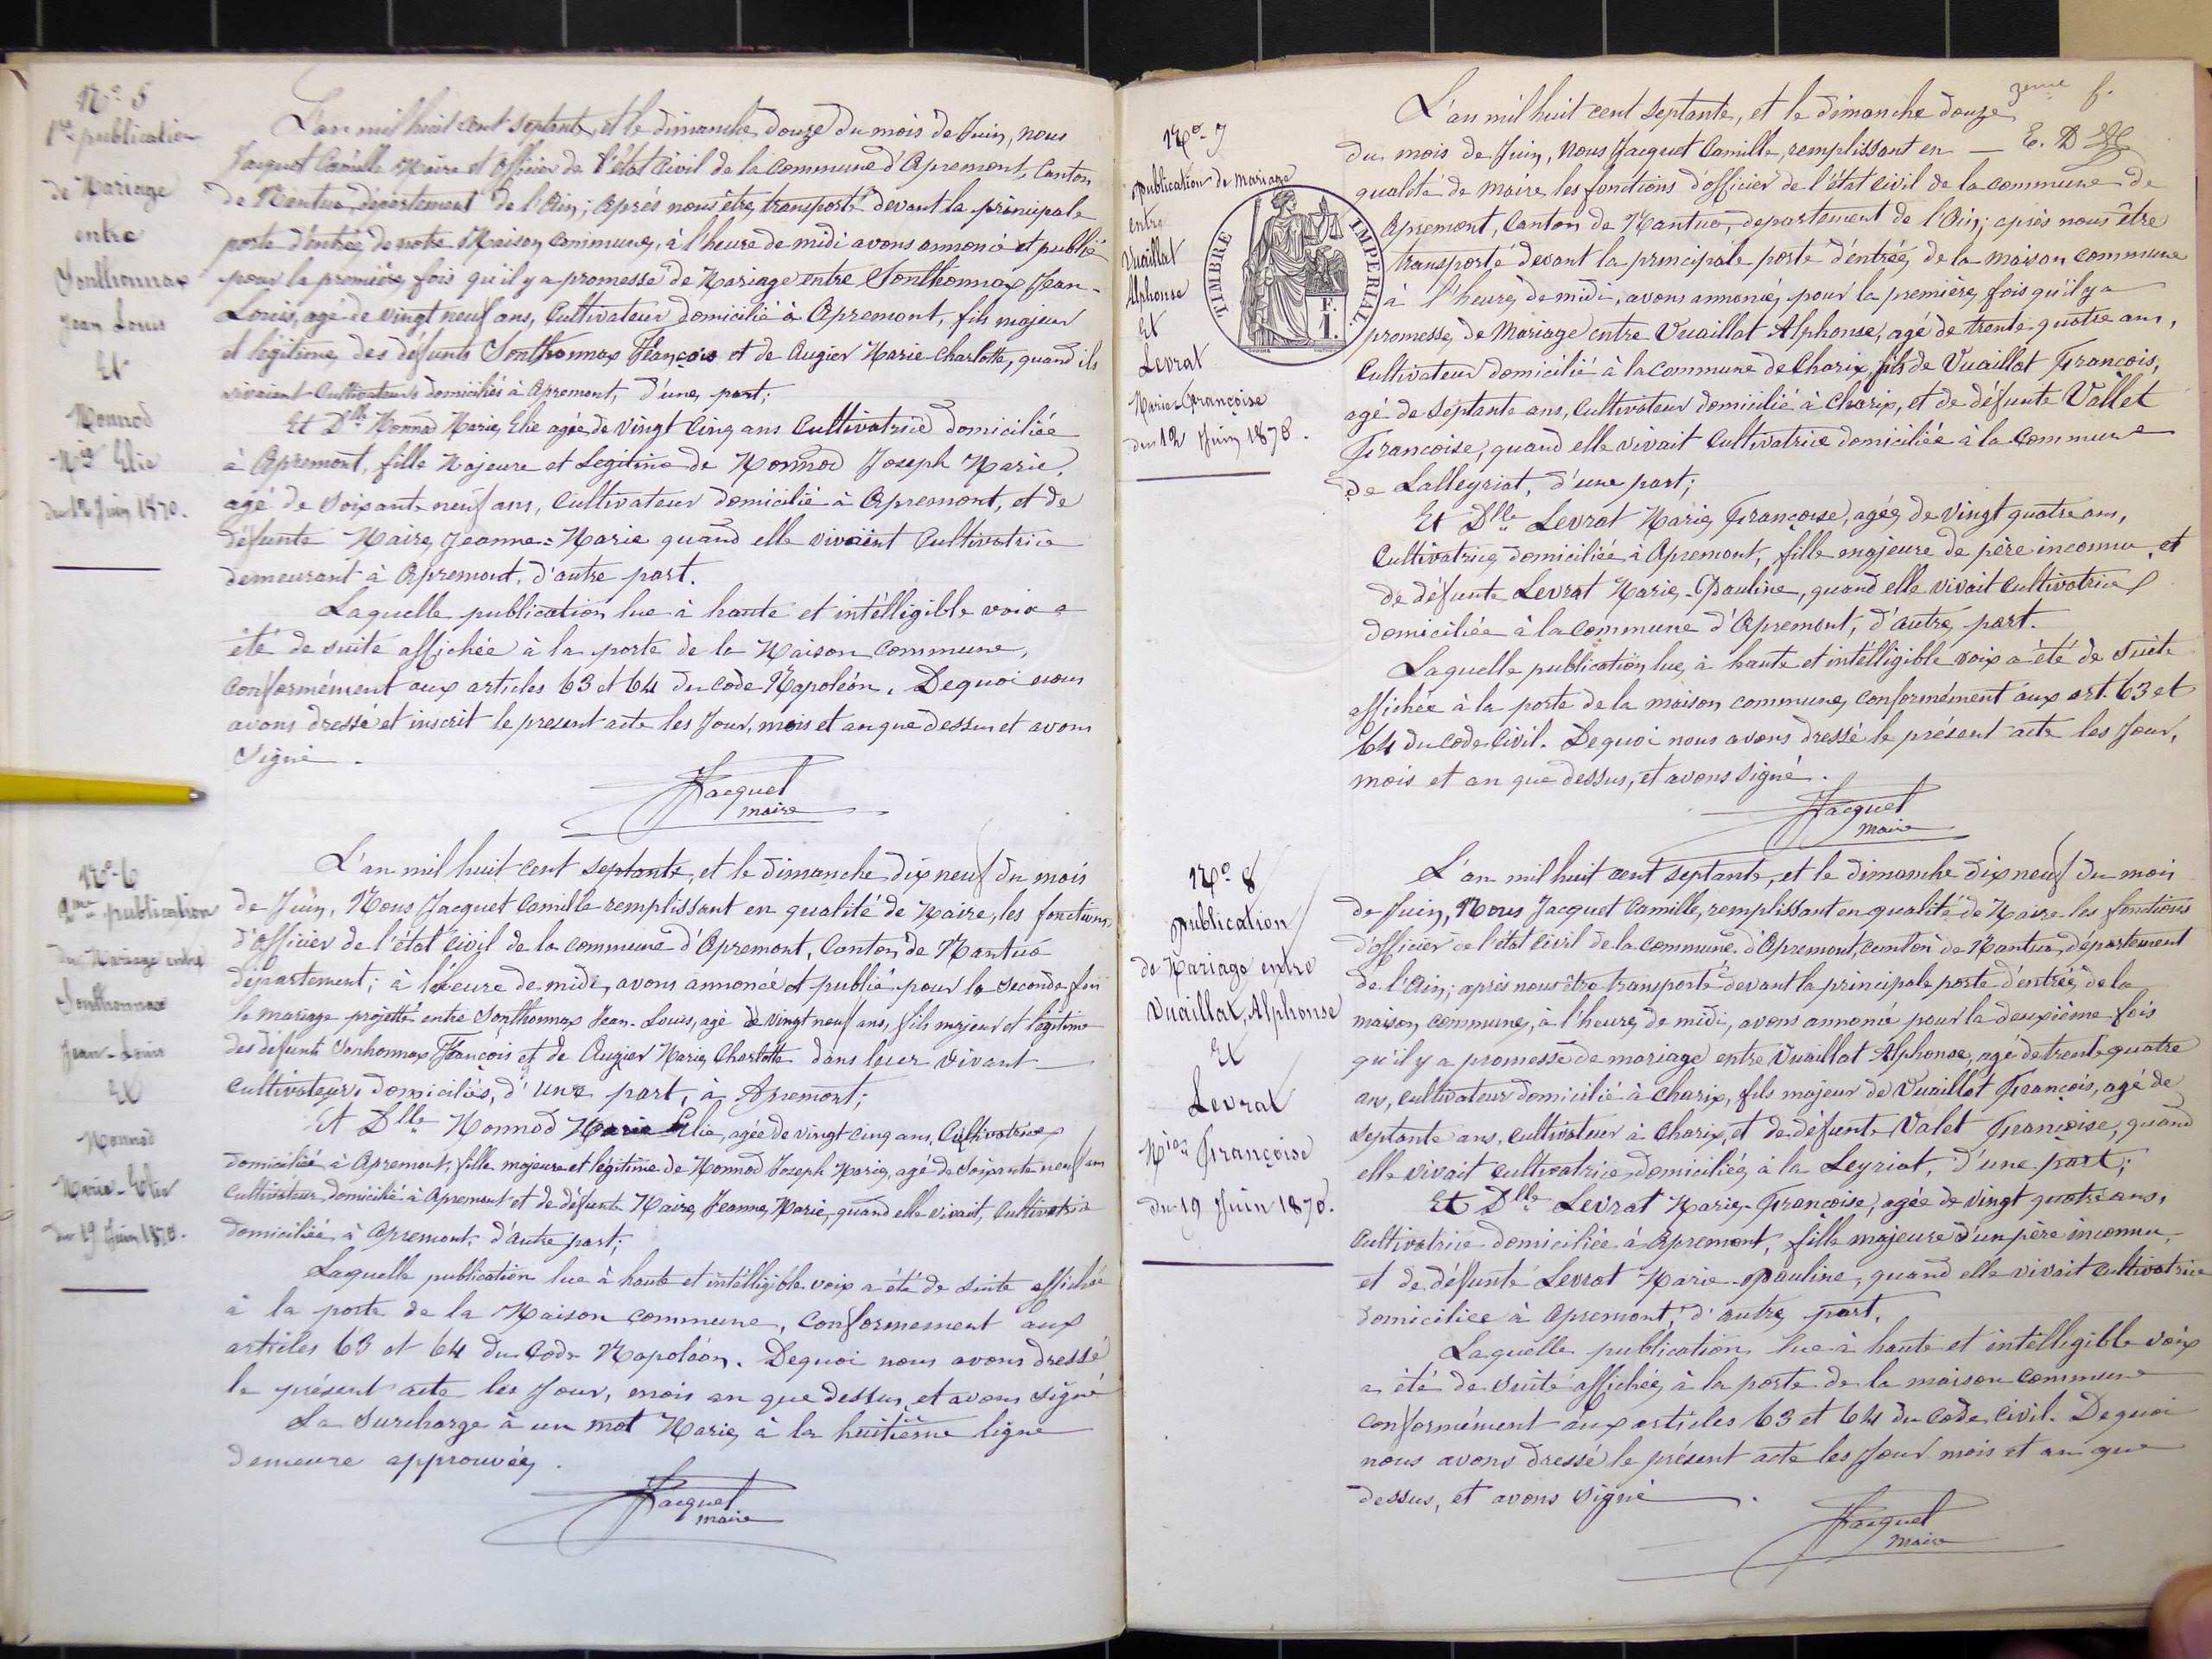 N° 5
1re publication
de Mariage
entre
Sonthonnax
Jean Louis
Et
Monnod
Mie Elie
du 12 Juin 1870.
L'an mil huit cent septante, et le dimanche douze du mois de Juin, nous
Jacquet Camille Maire et Officier de l'état Civil de la Commune d'Apremont, Canton
de Nantua, département de l'Ain; après nous être transporté devant la principale
porte d'entrée de notre Maison Commune, à l'heure de midi avons annoncé et publié
pour la première fois qu'il y a promesse de Mariage entre Sonthonnax Jean-
Louis, agé de vingt neuf ans, Cultivateur domicilié à Apremont, fils majeur
et légitime des défunts Sonthonnax François et de Augier Marie Charlotte, quand ils
vivaient Cultivateurs domiciliés à Apremont, d'une part;
Et Dlle Monnod Marie Elie agée de vingt cinq ans Cultivatrice domiciliée
à Apremont, fille Majeure et Legitime de Monnod Joseph Marie,
agé de soixante neuf ans, Cultivateur domicilié à Apremont, et de
défunte Maire Jeanne-Marie quand elle vivaint Cultivatrice
demeurant à Apremont, d'autre part.
Laquelle publication lue à haute et intélligible voix a
été de suite affichée à la porte de la Maison Commune,
conformément aux articles 63 et 64 du Code Napoléon. Dequoi nous
avons dressé et inscrit le present acte les Jour, mois et an que dessus et avons
Signé.
Jacquet
maire
N° 6
2me publication
du Mariage entre
Sonthonnax
Jean-Louis
Et
Monnod
Marie-Elie
du 19 Juin 1870.
L'an mil huit cent septante, et le dimanche dix neuf du mois
de Juin, Nous Jacquet Camille remplissant en qualité de Maire, les fonctions
d'officier de l'état civil de la commune d'Apremont, Canton de Nantua
département; à l'heure de midi, avons annoncé et publié pour la seconde fois
le mariage projetté entre Sonthonnax Jean-Louis, agé de vingt neuf ans, fils majeur et légitime
des défunts Sonhonnax François et de Augier Marie Charlotte dans leur vivant
cultivateurs domiciliés, d'une part, à Apremont;
Et Dlle Monnod Marie Elie, agée de vingt cinq ans, Cultivatrice
domiciliée à Apremont, fille majeure et légitime de Monnod Joseph Marie, agé de soixante neuf ans
Cultivateur domicilié à Apremont et de défunte Maire Jeanne Marie, quand elle vivait, Cultivatrice
domiciliée à Apremont d'autre part;
Laquelle publication lue à haute et intélligible voix a été de suite affichée
à la porte de la Maison commune, conformement aux
articles 63 et 64 du Code Napoléon. Dequoi nous avons dressé
le présent acte les Jour, mois an que dessus et avons signé
La Surcharge à un mot Marie à la huitième ligne
demeure approuvée.
Jacquet
maire
3eme f.
E. D
TIMBRE IMPERIAL
F.
1.
N° 7
publication de Mariage
entre
Vuaillat
Alphonse
Et
Levrat
Marie-Françoise
du 12 Juin 1870.
L'an mil huit cent septante, et le dimanche douze
du mois de Juin, Nous Jacquet Camille, remplissant en
qualité de Maire les fonctions d'officier de l'état civil de la commune de
Apremont, Canton de Nantua, departement de l'Ain; après nous être
transporté devant la principale porte d'éntrée, de la maison commune
à l'heure, de midi, avons annoncé, pour la première, fois qu'il y a
promesse, de Mariage entre Vuaillat Alphonse, agé de trente quatre ans,
Cultivateur domicilié à la commune de Charix, fils de Vuaillat François,
agé de septante ans, cultivateur domicilié à Charix, et de défunte Vallet
Françoise, quand elle vivait cultivatrice domiciliée à la Commune
de Lalleyriat, d'une part;
Et Dlle Levrat Marie Françoise, agée, de vingt quatre ans,
Cultivatrice domiciliée à Apremont, fille majeure de père inconnu, et
de défunte Levrat Marie-Pauline, quand elle vivait Cultivatrice
domiciliée à la commune d'Apremont, d'autre part.
Laquelle publication, lue, à haute et intélligible voix a été de suite
affichée à la porte de la maison commune, conformément aux art. 63 et
64 du code Civil. De quoi nous avons dressé le présent acte les Jour,
mois et an que dessus, et avons signé.
Jacquet
maire
N° 8
publication
de Mariage entre
Vuaillat, Alphonse
Et
Levrat
Mie Françoise
du 19 Juin 1870.
L'an mil huit cent septante, et le dimanche dix neuf du mois
de Juin, Nous Jacquet Camille, remplissant en qualité de Maire les fonctions
d'officier de l'état civil de la commune d'Apremont, canton de Nantua, département
de l'Ain; après nous être transporté devant la principale porte d'éntrée, de la
maison commune, à l'heure, de midi, avons annoncé pour la deuxième fois
qu'il y a promesse de mariage entre Vuaillat Alphonse, agé de trente quatre
ans, cultivateur domicilié à Charix, fils majeur de Vuaillat François, agé de
septante ans, cultivateur à Charix, et de défunte Valet Françoise, quand
elle vivait cultivatrice domiciliée, à la Leyriat, d'une part;
Et Dlle Levrat Marie-Françoise, agée de vingt quatre ans,
Cultivatrice domiciliée à Apremont, fille majeure d'un père inconnu,
et de défunte Levrat Marie-pauline, quand elle vivait cultivatrice
domiciliée à Apremont, d'autre part.
Laquelle publication, lue à haute et intélligible voix
a été de suite affichée, à la porte de la maison commune
conformément aux articles 63 et 64 du Code, civil. Dequoi
nous avons dressé le présent acte les Jour mois et an que
dessus, et avons signé.
Jacquet
Maire